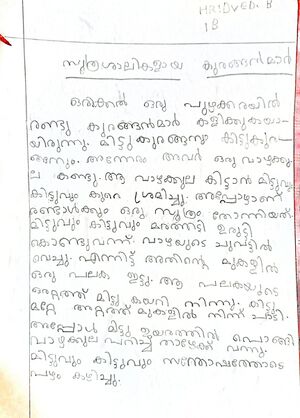 HRIDVED. B
1B
സൂത്രശാലികളായ കുരങ്ങൻമാർ
ഒരിക്കൽ ഒരു പുഴക്കരയിൽ
രണ്ടു കുരങ്ങൻമാർ കളിക്കുകയാ-
യിരുന്നു. മിട്ടുകുരങ്ങനും കിട്ടുകുര-
ങ്ങനും. അന്നേരം അവർ ഒരു വാഴക്കു-
ല കണ്ടു. ആ വാഴക്കുല കിട്ടാൻ മിട്ടുവും
കിട്ടുവും കുറെ ശ്രമിച്ചു. അപ്പോഴാണ്
രണ്ടാൾക്കും ഒരു സൂത്രം തോന്നിയത്.
മിട്ടുവും കിട്ടുവും മരത്തടി ഉരുട്ടി
കൊണ്ടുവന്ന് വാഴയുടെ ചുവട്ടിൽ
വെച്ചു. എന്നിട്ട് അതിന്റെ മുകളിൽ
ഒരു പലക ഇട്ടു. ആ പലകയുടെ
ഒരറ്റത്ത് മിട്ടു കയറി നിന്നു. കിട്ടു
മറ്റേ അറ്റത്ത് മുകളിൽ നിന്ന് ചാടി.
അപ്പോൾ മിട്ടു ഉയരത്തിൽ പൊങ്ങി
വാഴക്കുല പറിച്ച് താഴേക്ക് വന്നു.
മിട്ടുവും കിട്ടുവും സന്തോഷത്തോടെ
പഴം കഴിച്ചു.